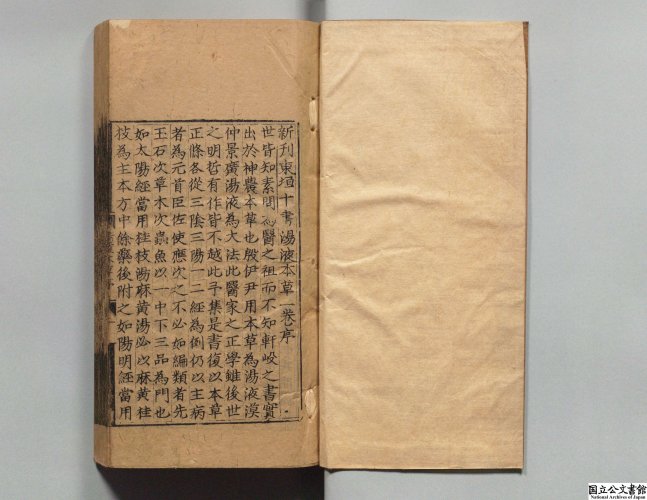 新刊東垣十書湯液本草一卷序
世皆知素問為醫之祖而不知軒岐之書實
出於神農本草也殷伊尹用本草為湯液漢
仲景廣湯液為大法此醫家之正學雖後世
之明哲有作皆不越此予集是書復以本草
正條各從三陰三陽一二經為例仍以主病
者為元首臣佐使應次之不必如編類者先
玉石次草木次蟲魚以一中下三品為門也
如太陽經當用桂枝湯麻黃湯必以麻黃桂
枝為主本方中餘藥後附之如陽明經當用
国立公文書館
National Archives of Japan